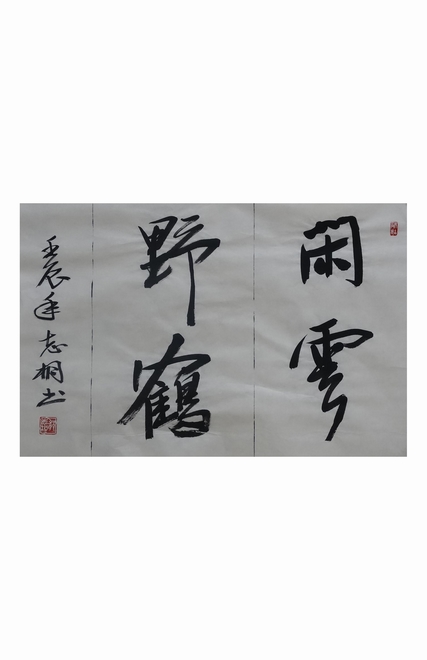 閑雲
野鶴
壬辰年志桐书